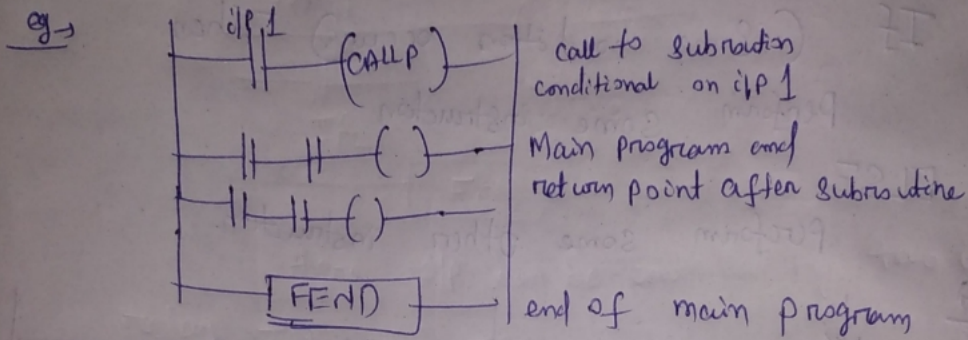 eg→
i/p 1
(CALLP)
call to subroution
conditional on i/p 1
Main program and
return point after subroutine
FEND
end of main program